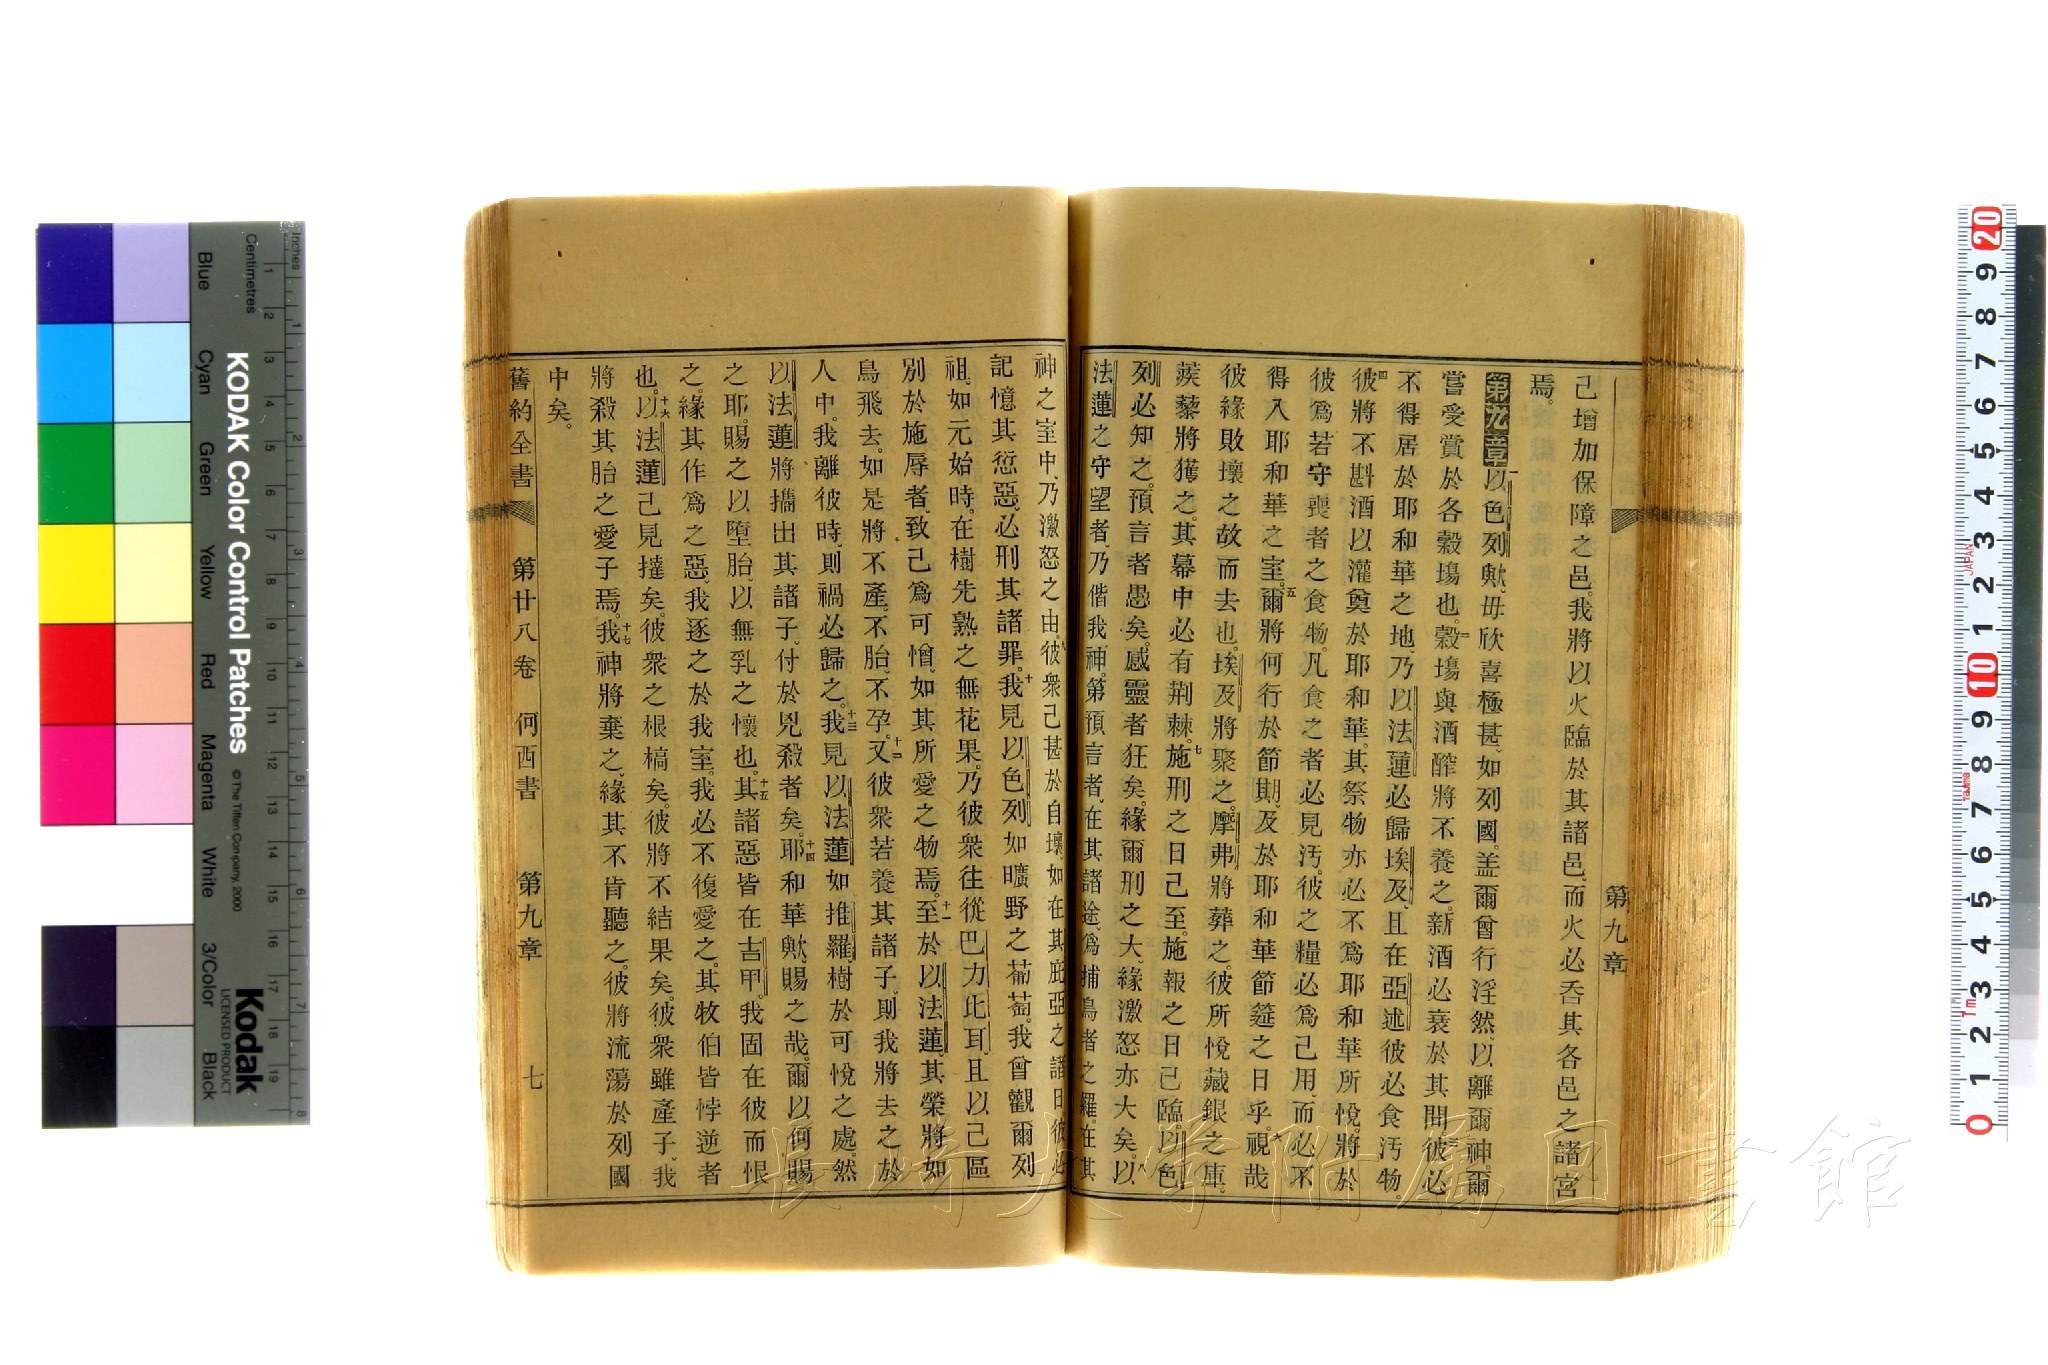 己增加保障之邑。我將以火臨於其諸邑、而火必吞其各邑之諸宮
焉。
第九章 一以色列歟、毋欣喜極甚、如列國。盖爾曾行淫然、以離爾神。爾
嘗受賞於各穀塲也。二穀塲與酒醡將不養之。新酒必衰於其間。三彼必
不得居於耶和華之地、乃以法蓮必歸埃及、且在亞述彼必食汚物。
四彼將不斟酒以灌奠於耶和華。其祭物亦必不爲耶和華所悅。將於
彼爲若守喪者之食物。凡食之者必見汚。彼之糧必爲己用、而必不
得入耶和華之室。五爾將何行於節期、及於耶和華節筵之日乎。六視哉
彼緣敗壞之故而去也。埃及將聚之。摩弗將葬之。彼所悅藏銀之庫。
蒺藜將獲之。其幕中必有荆棘。七施刑之日己至。施報之日己臨。以色
列必知之。預言者愚矣。感靈者狂矣。緣爾刑之大、緣激怒亦大矣。八以
法蓮之守望者、乃偕我神。第預言者、在其諸途、爲捕鳥者之羅。在其
神之室中、乃激怒之由。九彼衆己甚於自壞、如在其庇亞之諸日。彼必
記憶其愆惡。必刑其諸罪。十我見以色列、如曠野之葡萄。我曾觀爾列
祖、如元始時。在樹先熟之無花果。乃彼衆往從巴力比耳、且以己區
別於施辱者、致己爲可憎、如其所愛之物焉。十一至於以法蓮、其榮將如
鳥飛去。如是將不產、不胎、不孕。十二又彼衆若養其諸子、則我將去之於
人中。我離彼時、則禍必歸之。十三我見以法蓮如推羅、樹於可悅之處。然
以法蓮將攜出其諸子、付於兇殺者矣。十四耶和華歟、賜之哉。爾以何賜
之耶。賜之以墮胎、以無乳之懷也。十五其諸惡皆在吉甲。我固在彼而恨
之。緣其作爲之惡、我逐之於我室。我必不復愛之。其牧伯皆悖逆者
也。十六以法蓮己見撻矣。彼衆之根槁矣。彼將不結果矣。彼衆雖產子、我
將殺其胎之愛子焉。十七我神將棄之、緣其不肯聽之。彼將流蕩於列國
中矣。
舊約全書 第廿八卷 何西書 第九章 七
第九章
KODAK Color Control Patches
© The Tiffen Company, 2000
Kodak
LICENSED PRODUCT
Inches
Centimetres
Blue
Cyan
Green
Yellow
Red
Magenta
White
3/Color
Black
長崎大学附属図書館